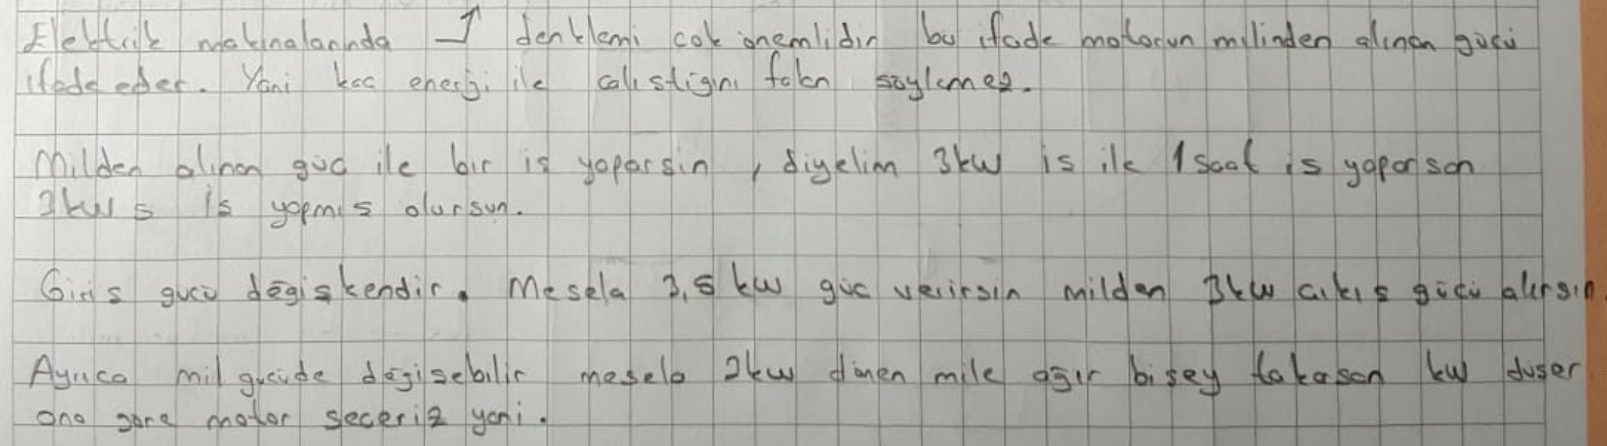 Elektrik makinalarında denklemi cok onemlidir bu ifade motorun milinden alınan gücü
ifade eder. Yani kac enerji ile calıstıgını falan soylemez.
Milden alinan guc ile bir is yaparsin, diyelim 3kW is ile 1 saat is yaparsan
3kWs is yapmıs olursun.
Giris gucu degiskendir. Mesela 3,5 kw güc verirsin milden 3kw cıkıs gücü alırsın
Ayrıca mil gucude degisebilir mesela 2kw dönen mile agır bisey takarsan kw duser
ona gore motor seceriz yani.